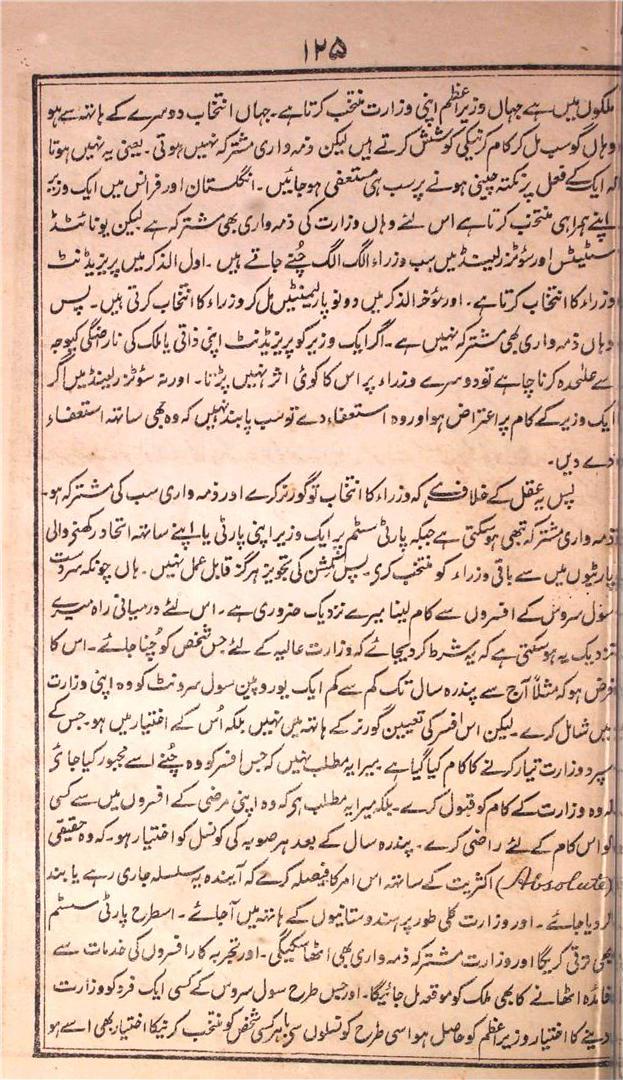 ۱۲۵
ملکوں میں ہے جہاں وزیر اعظم اپنی وزارت منتخب کرتا ہے۔ جہاں انتخاب دوسرے کے ہاتھ سے ہو
وہاں گو سب مل کر کام کرنیکی کوشش کرتے ہیں لیکن ذمہ واری مشترکہ نہیں ہوتی۔ یعنی یہ نہیں ہوتا
کہ ایک کے فعل پر نکتہ چینی ہونے پر سب ہی مستعفی ہو جائیں۔ انگلستان اور فرانس میں ایک وزیر
اپنے ہمراہی منتخب کرتا ہے اس لئے وہاں وزارت کی ذمہ واری بھی مشترکہ ہے لیکن یونائٹڈ
سٹیٹس اور سوئٹزرلینڈ میں سب وزراء الگ الگ چُنے جاتے ہیں۔ اول الذکر میں پریزیڈنٹ
وزراء کا انتخاب کرتا ہے۔ اور مؤخر الذکر میں دونو پارلیمنٹیں مل کر وزراء کا انتخاب کرتی ہیں۔ پس
وہاں ذمہ واری بھی مشترکہ نہیں ہے۔ اگر ایک وزیر کو پریزیڈنٹ اپنی ذاتی یا ملک کی ناراضگی کیوجہ
سے علٰحدہ کرنا چاہے تو دوسرے وزراء پر اس کا کوئی اثر نہیں پڑتا۔ اور نہ سوئٹزرلینڈ میں اگر
ایک وزیر کے کام پر اعتراض ہو اور وہ استعفاء دے تو سب پابند نہیں کہ وہ بھی ساتھ استعفاء
دے دیں۔
پس یہ عقل کے خلاف ہے کہ وزراء کا انتخاب تو گورنر کرے اور ذمہ واری سب کی مشترکہ ہو۔
ذمہ واری مشترکہ تبھی ہو سکتی ہے جبکہ پارٹی سسٹم پر ایک وزیر اپنی پارٹی یا اپنے ساتھ اتحاد رکھنے والی
پارٹیوں میں سے باقی وزراء کو منتخب کرے۔ پس کمشن کی تجویز ہرگز قابل عمل نہیں۔ ہاں چونکہ سردست
سول سروس کے افسروں سے کام لینا میرے نزدیک ضروری ہے۔ اس لئے درمیانی راہ میرے
نزدیک یہ ہو سکتی ہے کہ یہ شرط کر دیجائے کہ وزارت عالیہ کے لئے جس شخص کو چُنا جائے۔ اس کا
فرض ہو کہ مثلاً آج سے پندرہ سال تک کم سے کم ایک یوروپین سول سرونٹ کو وہ اپنی وزارت
میں شامل کرے۔ لیکن اس افسر کی تعیین گورنر کے ہاتھ میں نہیں بلکہ اُس کے اختیار میں ہو۔ جس کے
سپرد وزارت تیار کرنے کا کام کیا گیا ہے۔ میرا یہ مطلب نہیں کہ جس افسر کو وہ چُنے اسے مجبور کیا جائے
کہ وہ وزارت کے کام کو قبول کرے۔ بلکہ میرا یہ مطلب ہی کہ وہ اپنی مرضی کے افسروں میں سے کسی
کو اس کام کے لئے راضی کرے۔ پندرہ سال کے بعد ہر صوبہ کی کونسل کو اختیار ہو۔ کہ وہ حقیقی
(Absolute) اکثریت کے ساتھ اس امر کا فیصلہ کرے کہ آیندہ یہ سلسلہ جاری رہے یا بند
کر دیا جائے۔ اور وزارت کلی طور پر ہندوستانیوں کے ہاتھ میں آجائے۔ اسطرح پارٹی سسٹم
بھی ترقی کریگا اور وزارت مشترکہ ذمہ واری بھی اٹھا سکیگی۔ اور تجربہ کار افسروں کی خدمات سے
فائدہ اٹھانے کا بھی ملک کو موقعہ مل جائیگا۔ اور جس طرح سول سروس کے کسی ایک فرد کو وزارت
دینے کا اختیار وزیر اعظم کو حاصل ہو اسی طرح کونسلوں سی باہر کسی شخص کو منتخب کرنیکا اختیار بھی اسے ہو